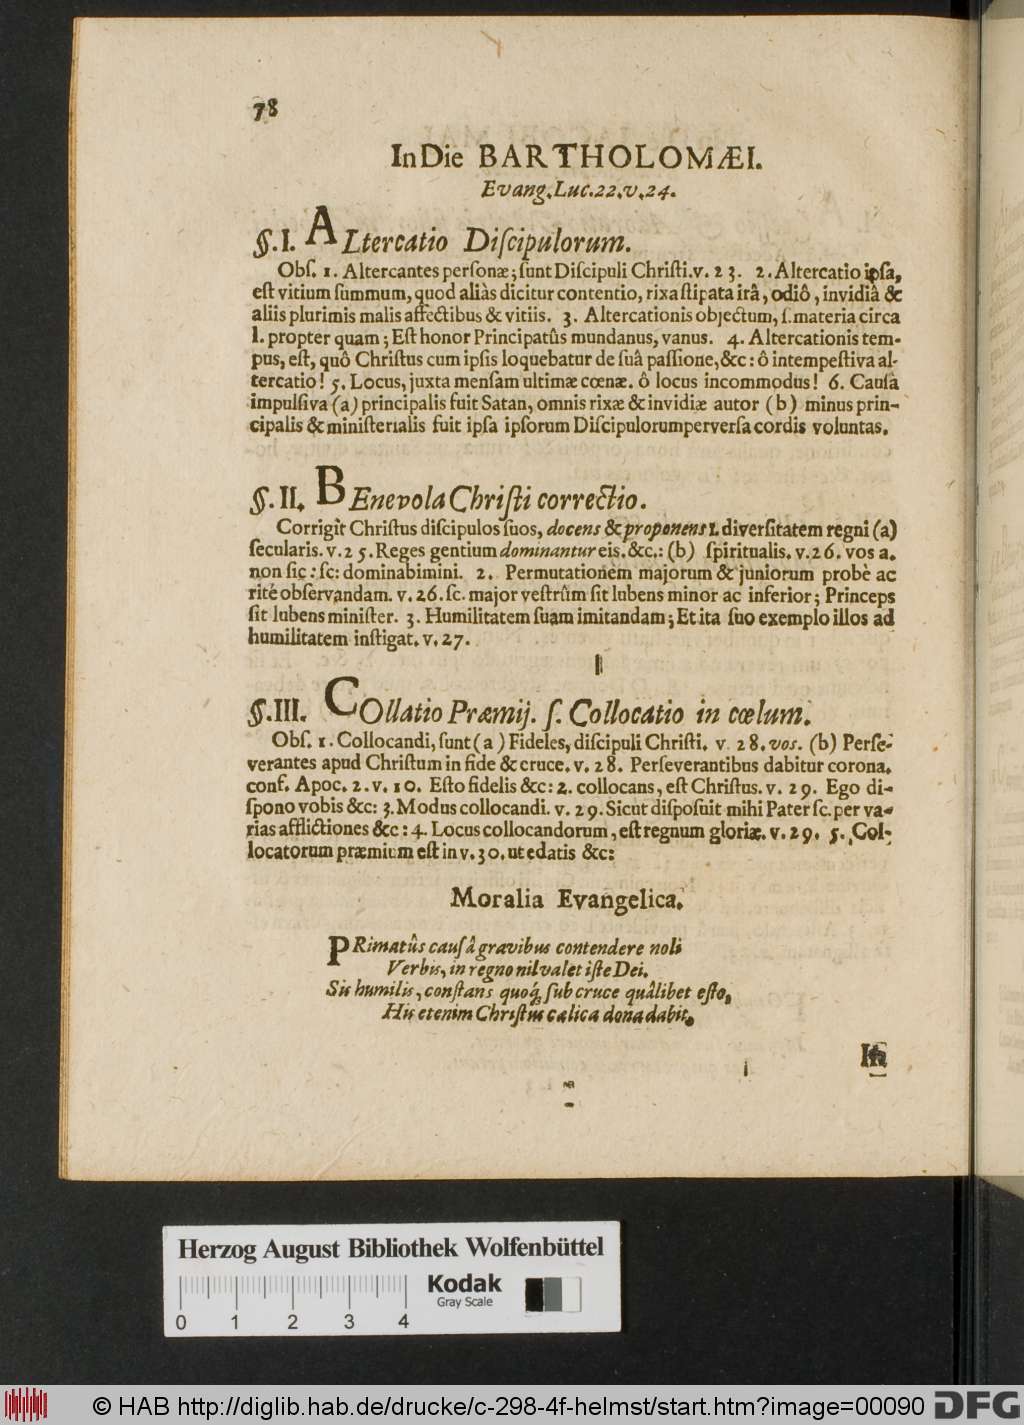 78
In Die BARTHOLOMÆI.
Evang. Luc. 22. v. 24.
§. I. ALtercatio Diſcipulorum.
Obſ. 1. Altercantes perſonæ; ſunt Diſcipuli Chriſti. v. 23. 2. Altercatio ipſa,
eſt vitium ſummum, quod aliàs dicitur contentio, rixa ſtipata irâ, odiô, invidiâ &
aliis plurimis malis affectibus & vitiis. 3. Altercationis objectum, ſ. materia circa
l. propter quam; Eſt honor Principatûs mundanus, vanus. 4. Altercationis tem-
pus, eſt, quô Chriſtus cum ipſis loquebatur de ſuâ paſſione, &c: ô intempeſtiva al-
tercatio! 5. Locus, juxta menſam ultimæ cœnæ. ô locus incommodus! 6. Cauſa
impulſiva (a) principalis fuit Satan, omnis rixæ & invidiæ autor (b) minus prin-
cipalis & miniſterialis fuit ipſa ipſorum Diſcipulorum perverſa cordis voluntas.
§. II. BEnevola Chriſti correctio.
Corrigit Chriſtus diſcipulos ſuos, docens & proponens 1. diverſitatem regni (a)
ſecularis. v. 25. Reges gentium dominantur eis. &c.: (b) ſpiritualis. v. 26. vos a.
non ſic: ſc: dominabimini. 2. Permutationem majorum & juniorum probè ac
rité obſervandam. v. 26. ſc. major veſtrûm ſit lubens minor ac inferior; Princeps
ſit lubens miniſter. 3. Humilitatem ſuam imitandam; Et ita ſuo exemplo illos ad
humilitatem inſtigat. v. 27.
§. III. COllatio Præmij. ſ. Collocatio in cœlum.
Obſ. 1. Collocandi, ſunt (a) Fideles, diſcipuli Chriſti. v. 28. vos. (b) Perſe-
verantes apud Chriſtum in fide & cruce. v. 28. Perſeverantibus dabitur corona.
conf. Apoc. 2. v. 10. Eſto fidelis &c: 2. collocans, eſt Chriſtus. v. 29. Ego di-
ſpono vobis &c: 3. Modus collocandi. v. 29. Sicut diſpoſuit mihi Pater ſc. per va-
rias afflictiones &c: 4. Locus collocandorum, eſt regnum gloriæ. v. 29. 5. Col-
locatorum præmium eſt in v. 30. ut edatis &c:
Moralia Evangelica.
PRimatûs cauſâ gravibus contendere noli
Verbis, in regno nil valet iſte Dei.
Sis humilis, conſtans quoq́; ſub cruce quâlibet eſto,
His etenim Chriſtus cœlica dona dabit.
In
Herzog August Bibliothek Wolfenbüttel
Kodak
Gray Scale
0 1 2 3 4
© HAB http://diglib.hab.de/drucke/c-298-4f-helmst/start.htm?image=00090 DFG